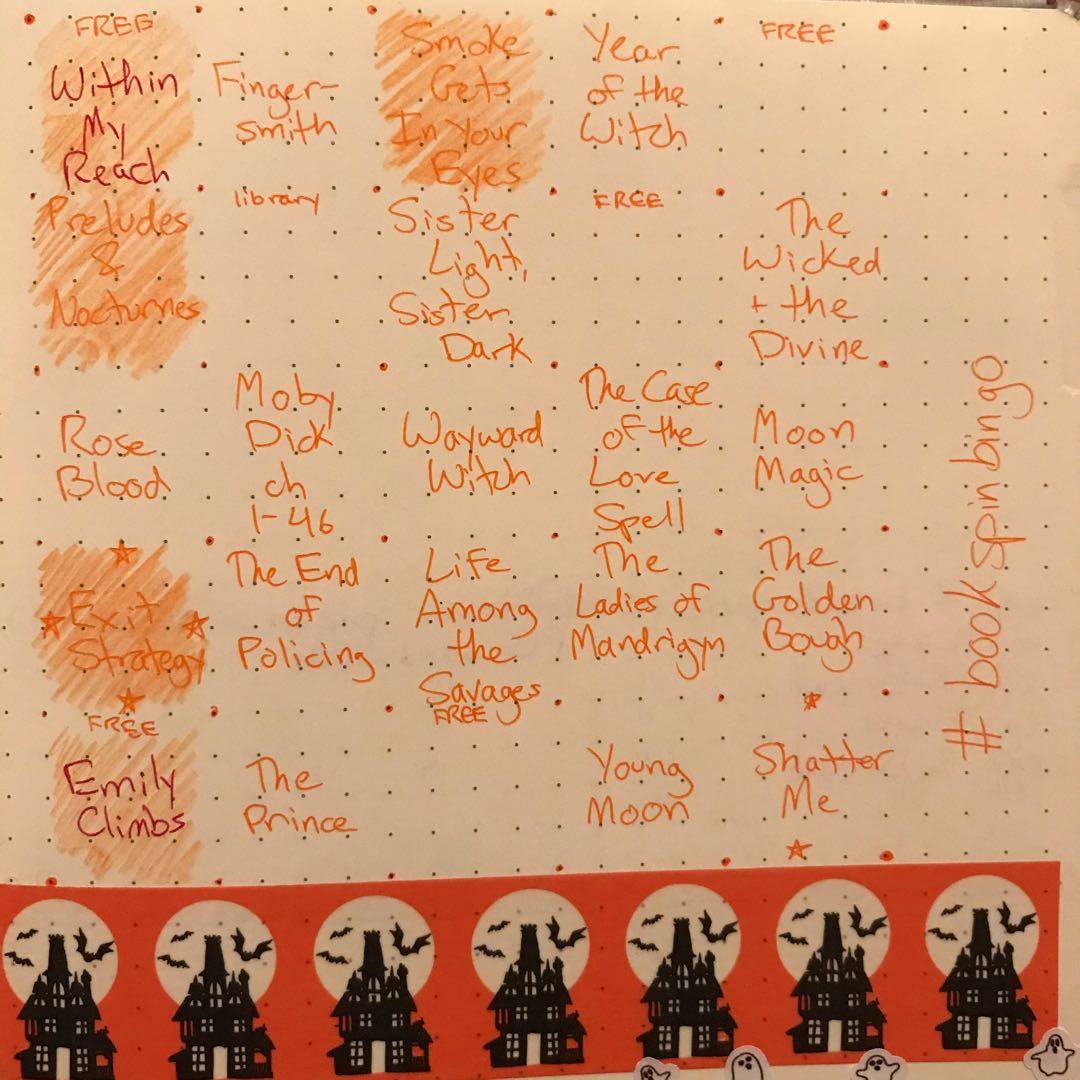 FREE
Within
My
Reach
Finger-
smith
Smoke
Gets
In Your
Eyes
Year
of the
Witch
FREE
Preludes
&
Nocturnes
library
Sister
Light,
Sister
Dark
FREE
The
Wicked
+ the
Divine
Rose
Blood
Moby
Dick
ch
1-46
Wayward
Witch
The Case
of the
Love
Spell
Moon
Magic
Exit
Strategy
The End
of
Policing
Life
Among
the
Savages
The
Ladies of
Mandrigyn
The
Golden
Bough
FREE
Emily
Climbs
The
Prince
FREE
Young
Moon
Shatter
Me
# bookspinbingo